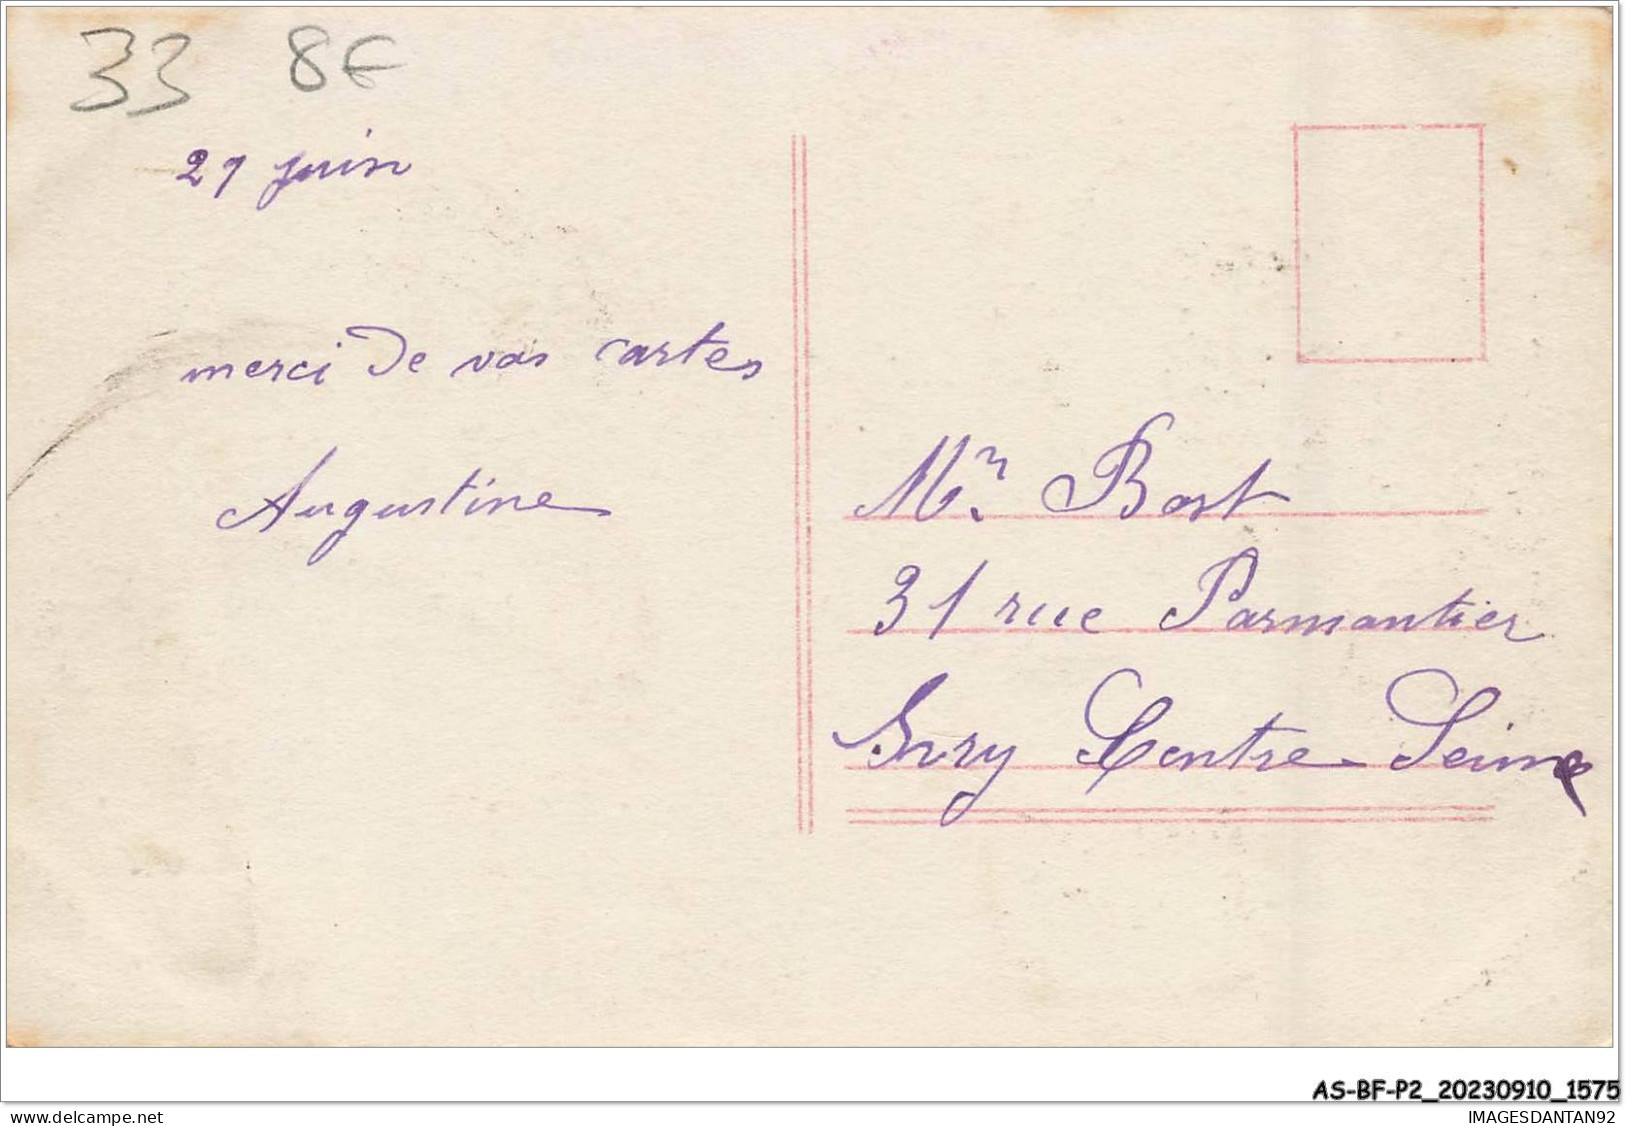 33 8€
21 juin
merci de vos cartes
Augustine
Mr Bost
31 rue Parmantier
Ivry Centre Seine
AS-BF-P2_20230910_1575
www.delcampe.net
IMAGESDANTAN92